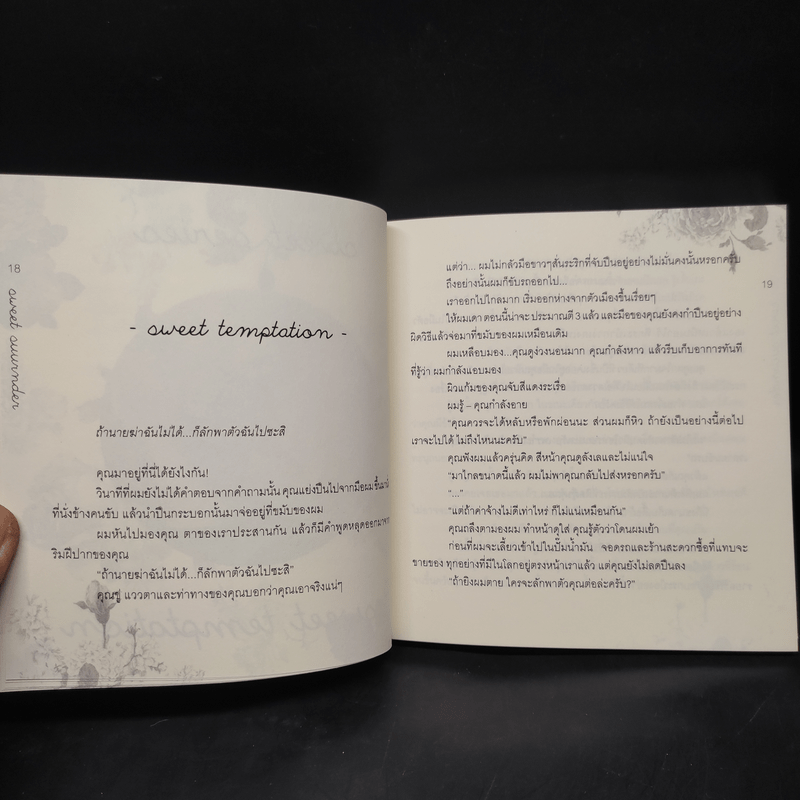 18
sweet suurnder
- sweet temptation -
ถ้านายฆ่าฉันไม่ได้...ก็ลักพาตัวฉันไปซะสิ
คุณมาอยู่ที่นี่ได้ยังไงกัน!
วินาทีที่ผมยังไม่ได้คำตอบจากคำถามนั้น คุณแย่งปืนไปจากมือผม
ที่นั่งข้างคนขับ แล้วนำปืนกระบอกนั้นมาจ่ออยู่ที่ขมับของผม
ผมหันไปมองคุณ ตาของเราประสานกัน แล้วก็มีคำพูดหลุดออกมาจาก
ริมฝีปากของคุณ
“ถ้านายฆ่าฉันไม่ได้...ก็ลักพาตัวฉันไปซะสิ”
คุณขู่ แววตาและท่าทางของคุณบอกว่าคุณเอาจริงแน่ๆ
19
แต่ว่า... ผมไม่กลัวมือขาวๆสั่นระริกที่จับปืนอยู่อย่างไม่มั่นคงนั้นหรอกครับ
ถึงอย่างนั้นผมก็ขับรถออกไป...
เราออกไปไกลมาก เริ่มออกห่างจากตัวเมืองขึ้นเรื่อยๆ
ให้ผมเดา ตอนนี้น่าจะ ประมาณตี 3 แล้ว และมือของคุณยังคงกำปืนอยู่อย่าง
ผิดวิธีแล้วจ่อมาที่ขมับของผมเหมือนเดิม
ผมเหลือบมอง...คุณดูง่วงนอนมาก คุณกำลังหาว แล้วรีบเก็บอาการทันที
ที่รู้ว่า ผมกำลังแอบมอง
ผิวแก้มของคุณจับสีแดงระเรื่อ
ผมรู้ – คุณกำลังอาย
“คุณควรจะได้หลับหรือพักผ่อนนะ ส่วนผมก็หิว ถ้ายังเป็นอย่างนี้ต่อไป
เราจะไปได้ ไม่ถึงไหนนะครับ”
คุณฟังผมแล้วครุ่นคิด สีหน้าคุณดูลังเลและไม่แน่ใจ
“มาไกลขนาดนี้แล้ว ผมไม่พาคุณกลับไปส่งหรอกครับ”
“...”
“แต่ถ้าค่าจ้างไม่ดีเท่าไหร่ ก็ไม่แน่เหมือนกัน”
คุณถลึงตามองผม ทำหน้าดุใส่ คุณรู้ตัวว่าโดนผมเย้า
ก่อนที่ผมจะเลี้ยวเข้าไปในปั๊มน้ำมัน จอดรถและร้านสะดวกซื้อที่แทบจะ
ขายของ ทุกอย่างที่มีในโลกอยู่ตรงหน้าเราแล้ว แต่คุณยังไม่ลดปืนลง
“ถ้ายิงผมตาย ใครจะลักพาตัวคุณต่อล่ะครับ?”